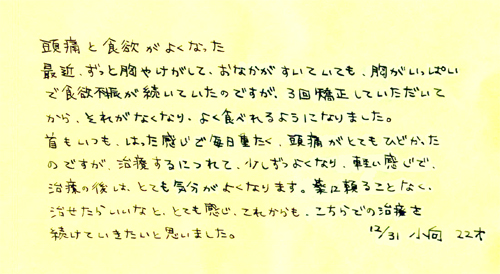 頭痛と食欲がよくなった
最近、ずっと胸やけがして、おなかがすいていても、胸がいっぱい
で食欲不振が続いていたのですが、3回矯正していただいて
から、それがなくなり、よく食べれるようになりました。
首もいつも、はった感じで毎日重たく、頭痛がとてもひどかった
のですが、治療するにつれて、少しずつよくなり、軽い感じで、
治療の後は、とても気分がよくなります。薬に頼ることなく、
治せたらいいなと、とても感じ、これからも、こちらでの治療を
続けていきたいと思いました。 12/31 小向 22才